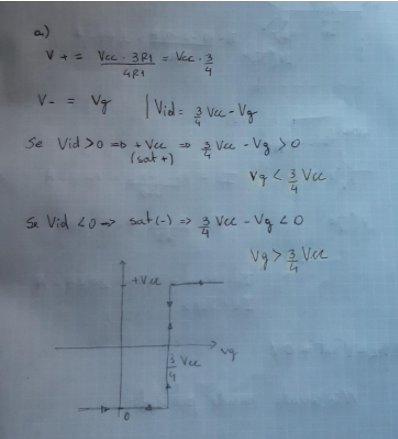 a)
V+ = Vcc · 3R1 / 4R1 = Vcc · 3/4
V- = Vg | Vid = 3/4 Vcc - Vg
Se Vid > 0 => + Vcc => 3/4 Vcc - Vg > 0
(sat +)
Vg < 3/4 Vcc
Se Vid < 0 -> sat(-) => 3/4 Vcc - Vg < 0
Vg > 3/4 Vcc
+Vcc
Vg
3/4 Vcc
0